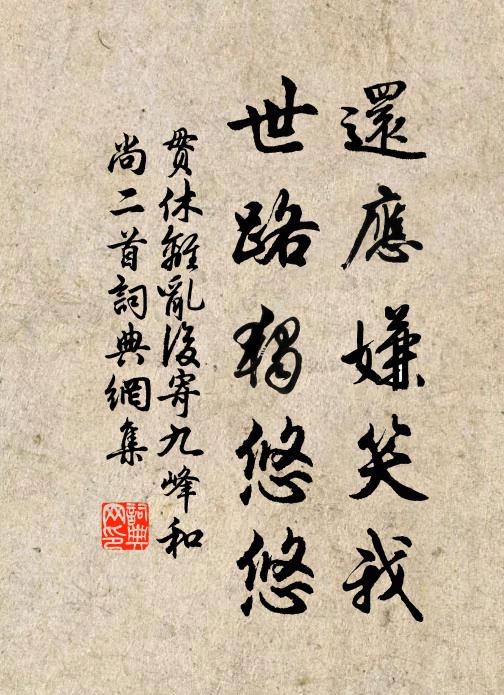 還應嫌笑我
世路獨悠悠
貫休離亂後寄九峰和
尚二首詞典網集
詞典網印